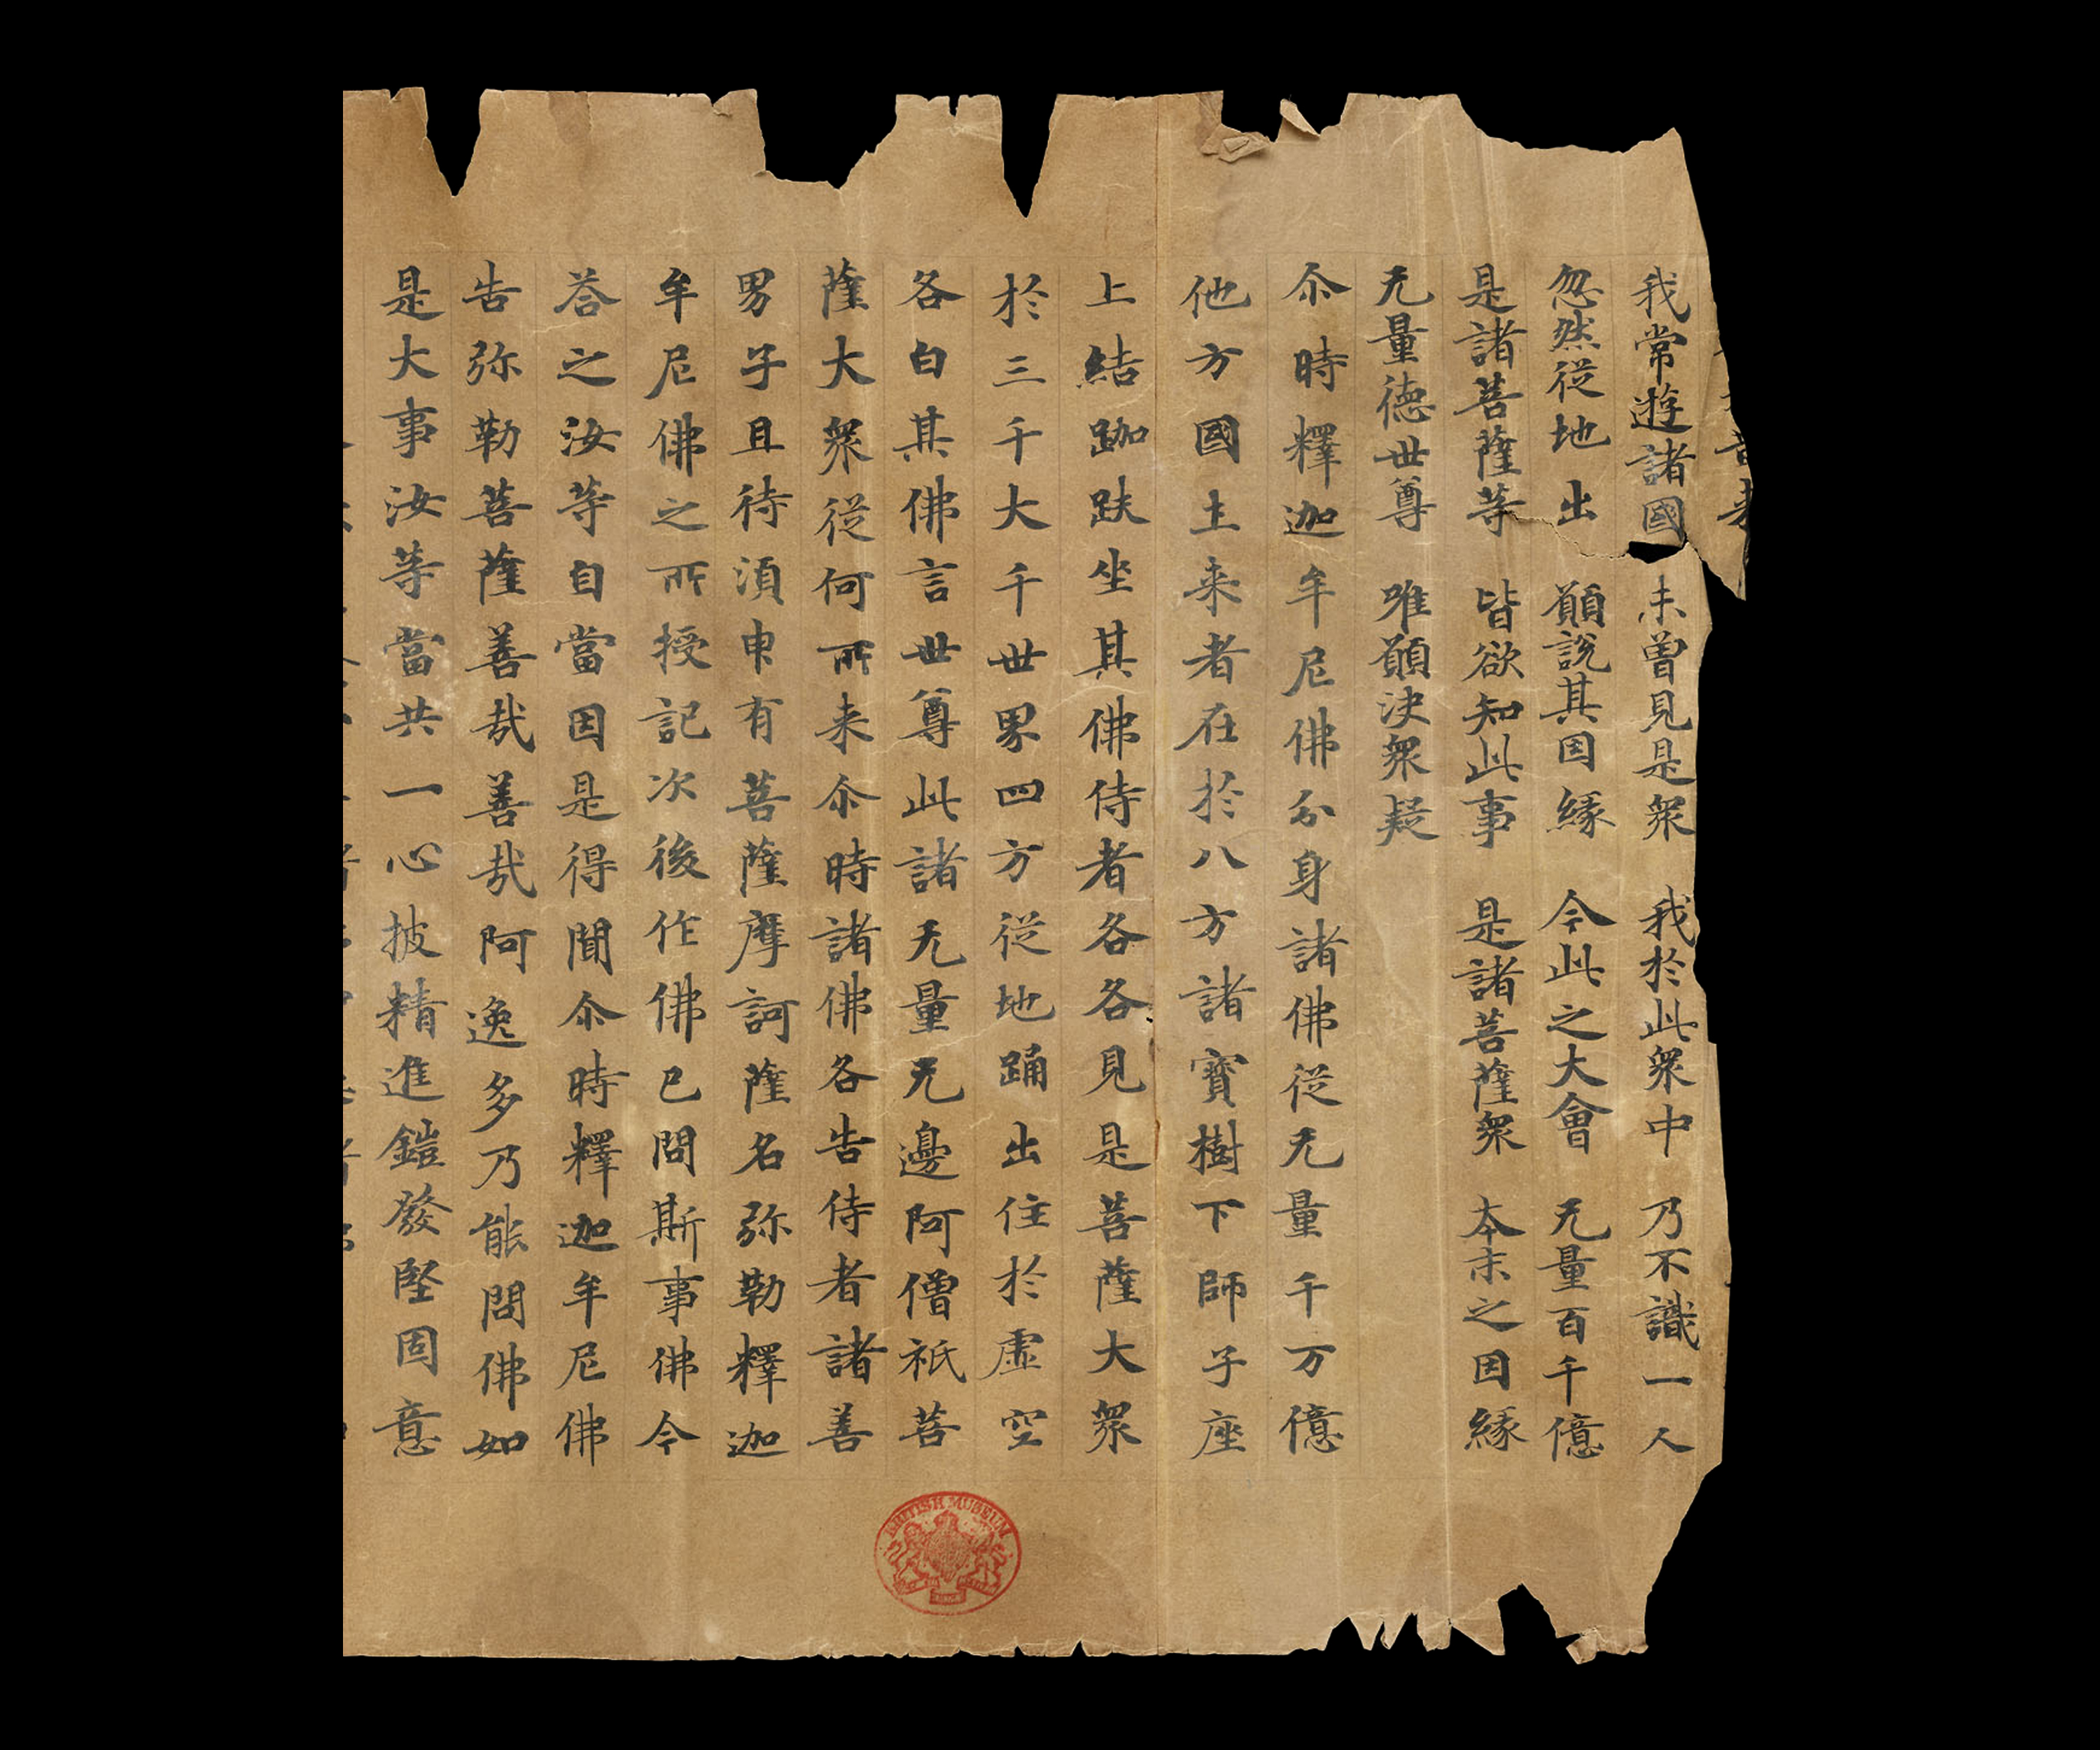 我常遊諸國 未曾見是衆 我於此衆中 乃不識一人
忽然從地出 願說其因緣 今此之大會 无量百千億
是諸菩薩等 皆欲知此事 是諸菩薩衆 本末之因緣
无量德世尊 唯願決衆疑
尒時釋迦牟尼佛分身諸佛從无量千万億
他方國土来者在於八方諸寶樹下師子座
上結跏趺坐其佛侍者各各見是菩薩大衆
於三千大千世界四方從地踊出住於虛空
各白其佛言世尊此諸无量无邊阿僧祇菩
薩大衆從何所来尒時諸佛各告侍者諸善
男子且待湏申有菩薩摩訶薩名弥勒釋迦
牟尼佛之所授記次後作佛已問斯事佛今
荅之汝等自當因是得聞尒時釋迦牟尼佛
告弥勒菩薩善哉善哉阿逸多乃能問佛如
是大事汝等當共一心披精進鎧發堅固意
BRITISH MUSEUM